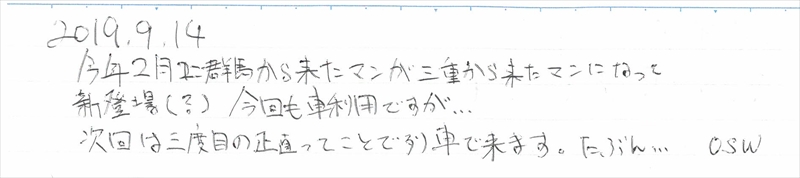 2019.9.14
今年2月に群馬から来たマンが三重から来たマンになって
新登場(?) 今回も車利用ですが…
次回は三度目の正直ってことで 車で来ます。たぶん… OSW